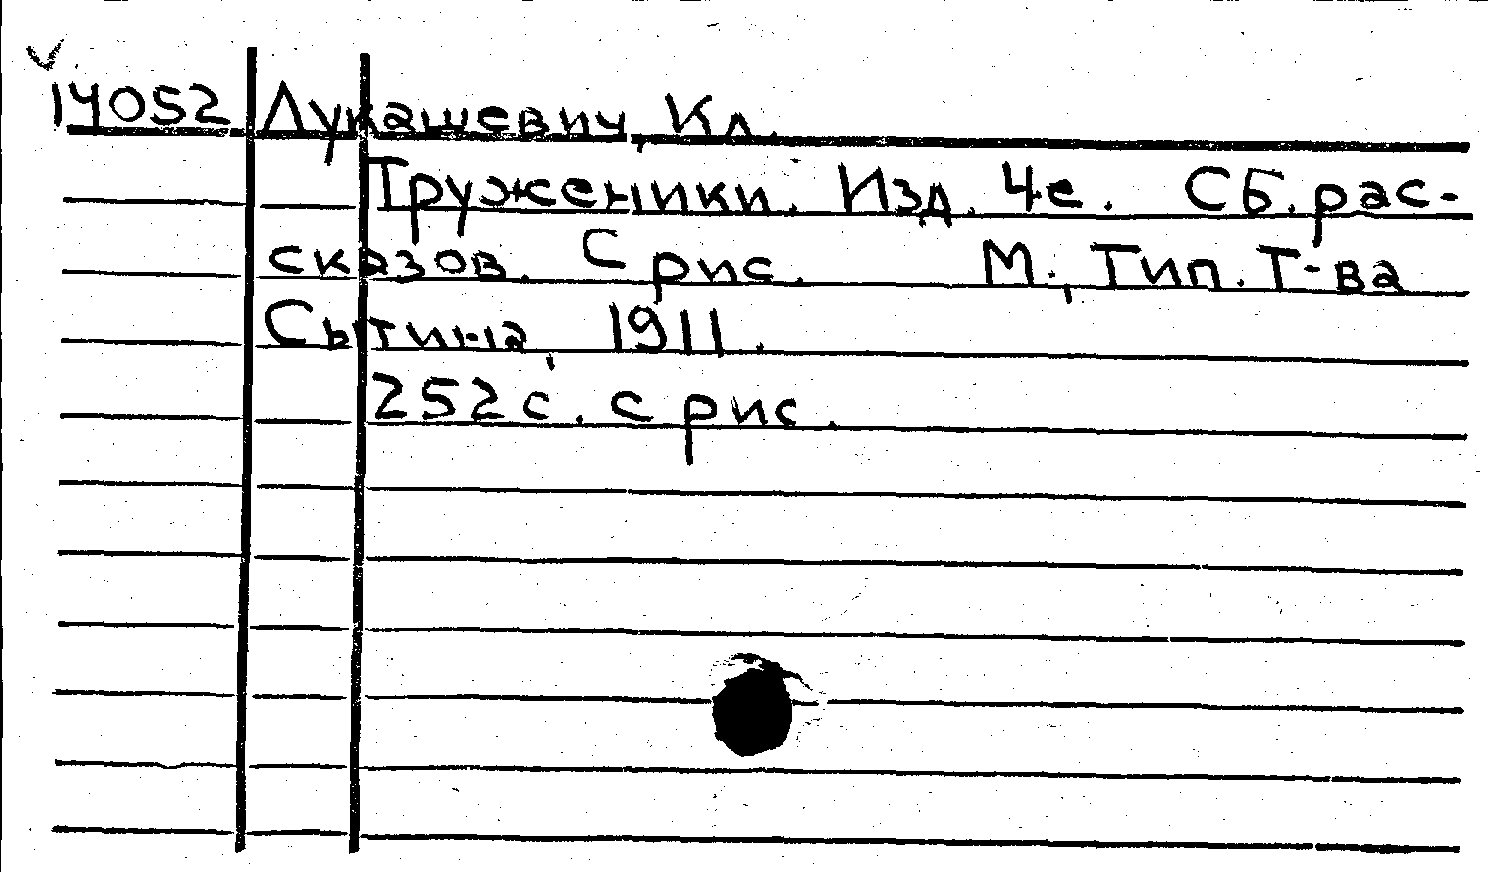 14052 Лукашевич, Кл.
Труженики. Изд. 4е. Сб. рас-
сказов. С рис. М., Тип. Т-ва
Сытина, 1911.
252 с. с рис.